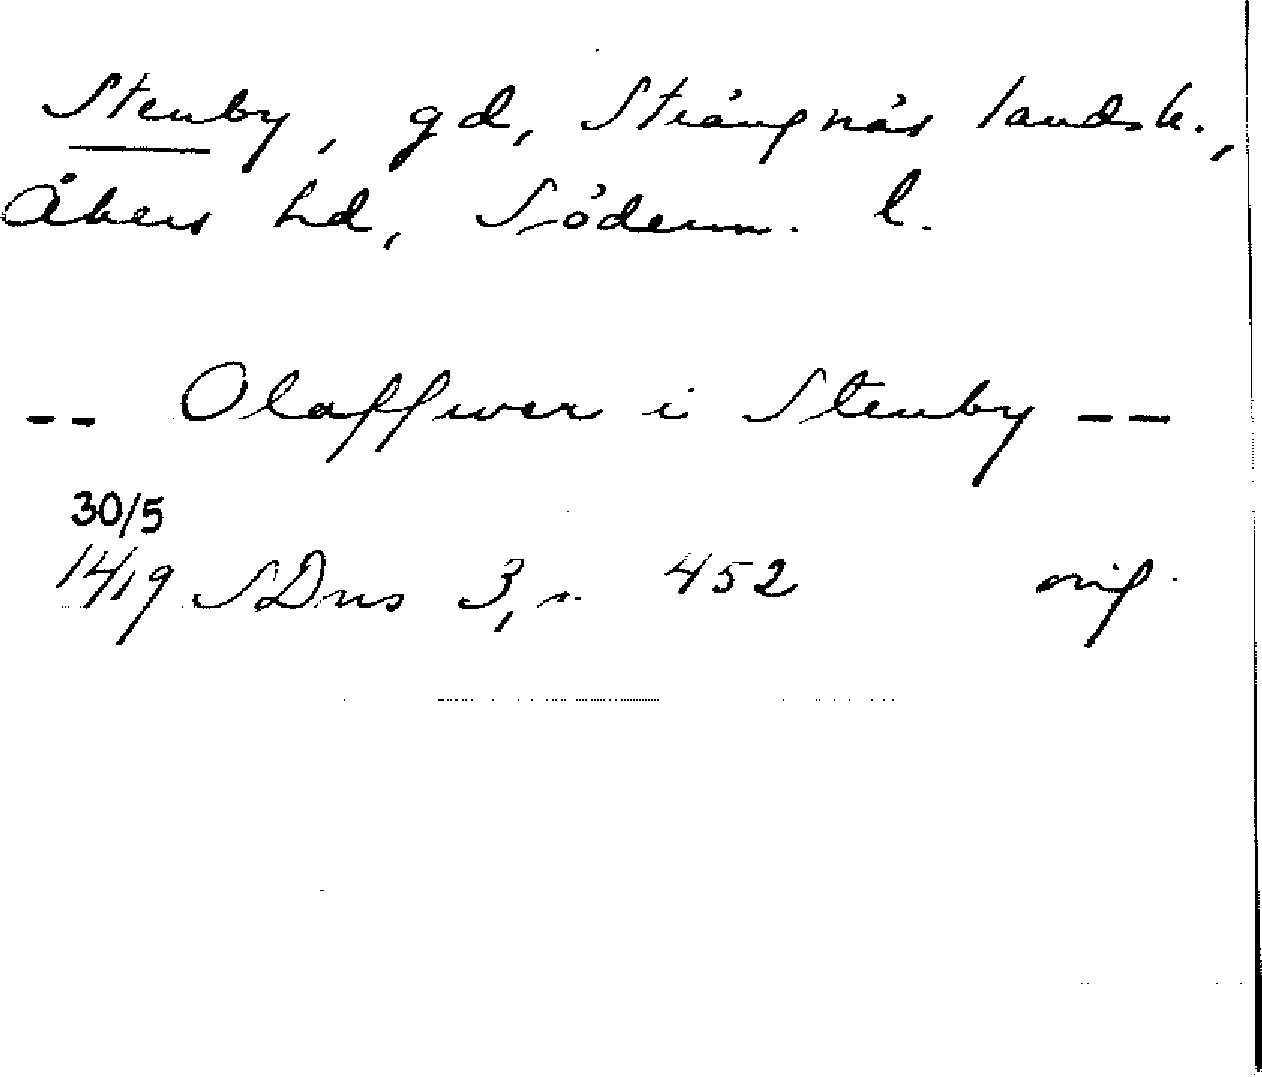 Stenby, gd, Strängnäs landsk.,
Åkers hd, Söderm. l.
-- Olaffwer i Stenby --
30/5
1419 SDns 3, s. 452 orig.